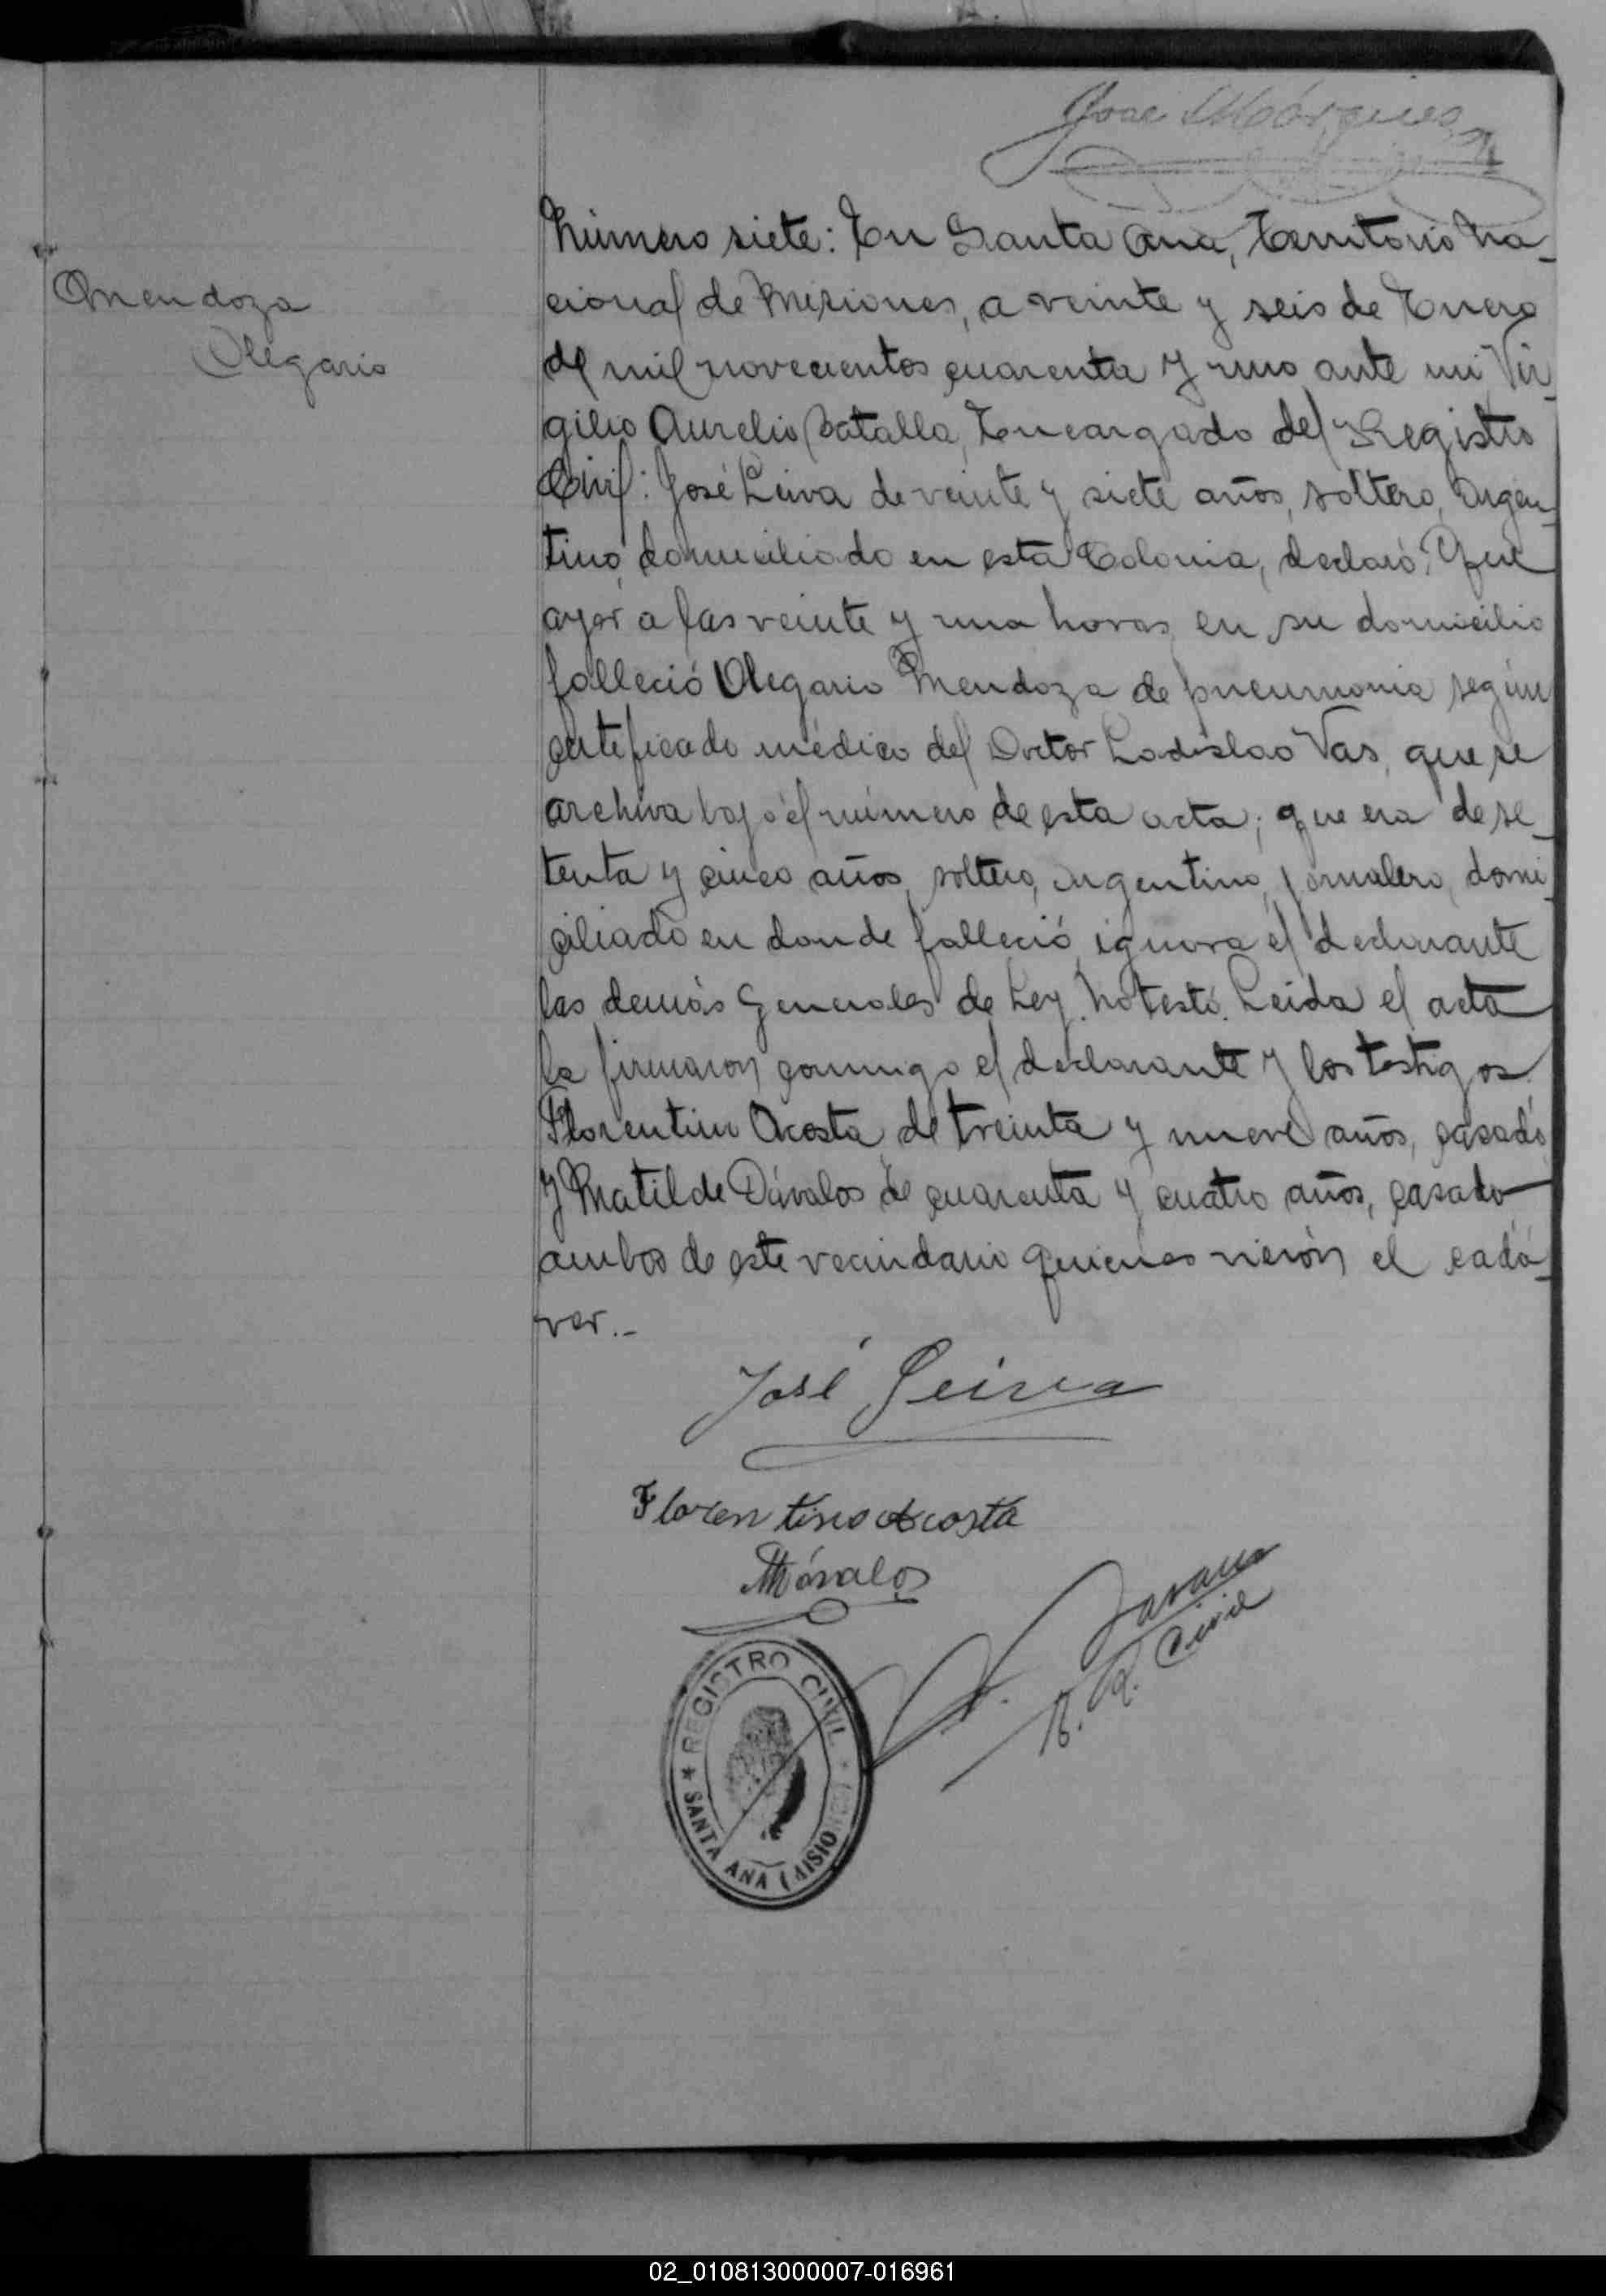 José Márquez
Número siete: En Santa Ana, Territorio Na_
cional de Misiones, a veinte y seis de Enero
Mendoza
Olegario
de mil novecientos cuarenta y uno ante mi Vir_
gilio Aurelio Batalla, Encargado del Registro
Civil: José Leiva de veinte y siete años, soltero, Argen_
tino, domiciliado en esta Colonia, declaró: Que
ayer a las veinte y una horas en su domicilio
falleció Olegario Mendoza de pneumonia según
certeficado médico del Doctor Ladislao Vas, que se
archiva bajo el número de esta acta; que era de se_
tenta y cinco años, soltero, argentino, jornalero, domi_
ciliado en donde falleció, ignora el declarante
las demás Generales de Ley. No testó. Leida el acta
la firmaron conmigo el declarante y los testigos
Florentino Acosta, de treinta y nueve años, casado
y Matilde Dávalos de cuarenta y cuatro años, casado
ambos de este vecindario quienes vierón el cadá_
ver._
José Leiva
Florentino Acosta
MDávalos
R. Civil
REGISTRO CIVIL
* SANTA ANA (MISIONES)
02_010813000007-016961